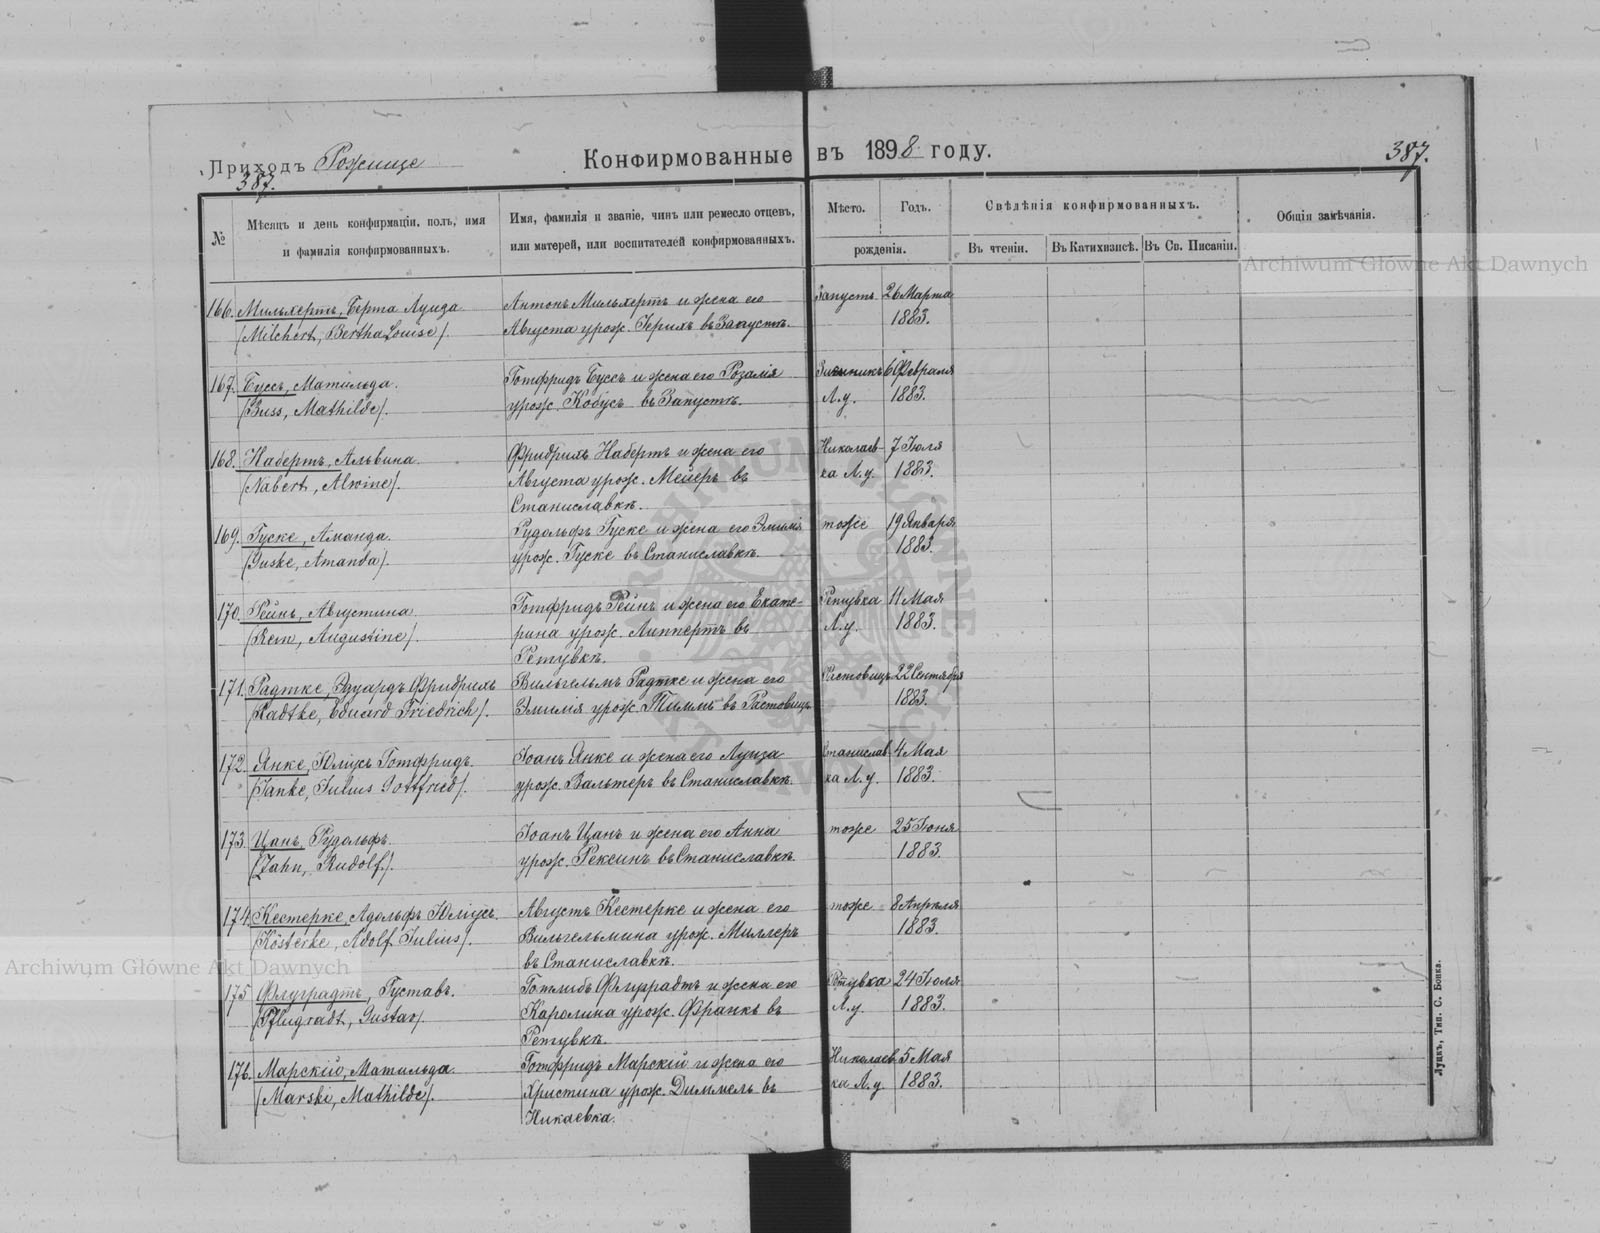 Приходъ Рожище
Конфирмованные въ 1898 году.
387.
387.
№
Мѣсяцъ и день конфирмаціи, полъ, имя
и фамилія конфирмованныхъ.
Имя, фамилія и званіе, чинъ или ремесло отцевъ,
или матерей, или воспитателей конфирмованныхъ.
Мѣсто.
Годъ.
рожденія.
Свѣдѣнія конфирмованныхъ.
Въ чтеніи.
Въ Катихизисѣ.
Въ Св. Писаніи.
Общія замѣчанія.
166. Мильхертъ, Берта Луиза Антонъ Мильхертъ и жена его Запустъ 26 Марта
(Milchert, Bertha Louise). Августа урож. Герихъ въ Запустѣ. 1883.
167. Буссъ, Матильда. Готфридъ Буссъ и жена его Розалія 6 Февраля
(Buss, Mathilde). урож. Кобусъ въ Запустѣ. Л.у. 1883.
168. Набертъ, Альвина. Фридрихъ Набертъ и жена его Николаев- 7 Іюля
(Nabert, Alwine). Августа урож. Мейеръ въ ка Л.у. 1883.
Станиславкѣ.
169. Гуске, Аманда. Рудольфъ Гуске и жена его Эмилія тоже 19 Января
(Guske, Amanda). урож. Гуске въ Станиславкѣ. 1883.
170. Рейнъ, Августина Готфридъ Рейнъ и жена его Екате- Ретувка 11 Мая
(Rein, Augustine). рина урож. Липпертъ въ Л.у. 1883.
Ретувкѣ.
171. Радтке, Эдуардъ Фридрихъ Вильгельмъ Радтке и жена его Растовецъ 22 Сентября
(Radtke, Eduard Friedrich). Эмилія урож. Тиммъ въ Растовецъ 1883.
172. Янке, Юліусъ Готфридъ. Іоанъ Янке и жена его Луиза Станислав- 4 Мая
(Janke, Julius Gottfried). урож. Вальтеръ въ Станиславкѣ. ка Л.у. 1883.
173. Цанъ, Рудольфъ. Іоанъ Цанъ и жена его Анна тоже 25 Іюня
(Zahn, Rudolf.). урож. Рексинъ въ Станиславкѣ. 1883.
174. Кестерке, Адольфъ Юліусъ. Августъ Кестерке и жена его тоже 8 Апрѣля
(Kösterke, Adolf Julius). Вильгельмина урож. Миллеръ 1883.
въ Станиславкѣ.
175 Флуградтъ, Густавъ. Готлибъ Флуградтъ и жена его Ретувка 24 Іюля
(Pflugradt, Gustav). Каролина урож. Франкъ въ Л.у. 1883.
Ретувкѣ.
176. Марскій, Матильда. Готфридъ Марскій и жена его Николаев- 5 Мая
(Marski, Mathilde). Христина урож. Диммель въ ка Л.у. 1883.
Никаевка.
Луцкъ, Тип. С. Бонка.
Archiwum Główne Akt Dawnych
Archiwum Główne Akt Dawnych